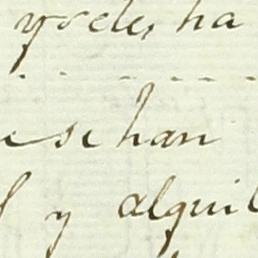 y se les ha
e se han
y alquil